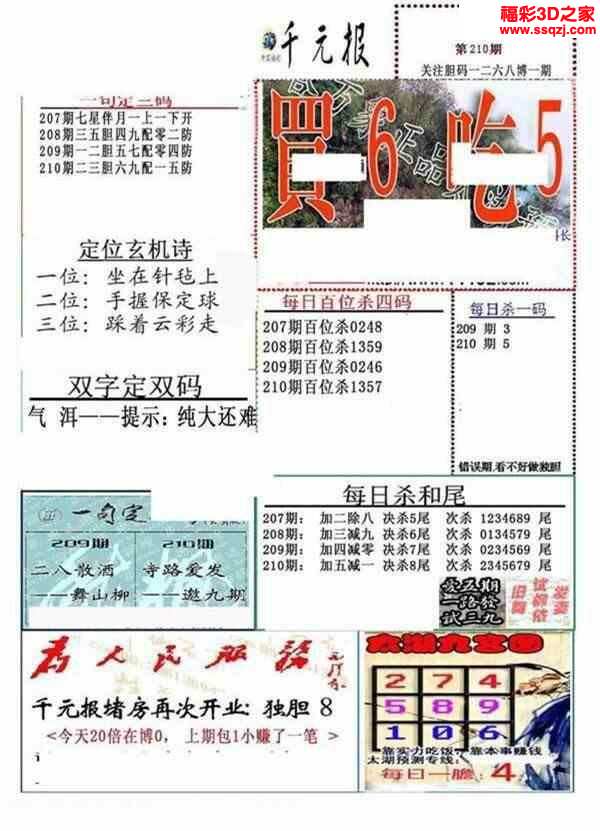 福彩3D之家
www.ssqzj.com
千元报
第210期
关注胆码一二六八博一期
一句定三码
207期七星伴月一上一下开
208期三五胆四九配零二防
209期一二胆五七配零四防
210期二三胆六九配一五防
買6吃5
定位玄机诗
一位：坐在针毡上
二位：手握保定球
三位：踩着云彩走
每日百位杀四码
207期百位杀0248
208期百位杀1359
209期百位杀0246
210期百位杀1357
每日杀一码
209 期 3
210 期 5
错误期,看不好做独胆
双字定双码
气 洱——提示:纯大还难
每日杀和尾
207期: 加二除八 决杀5尾 次杀 1234689 尾
208期: 加三减九 决杀6尾 次杀 0134579 尾
209期: 加四减零 决杀7尾 次杀 0234569 尾
210期: 加五减一 决杀8尾 次杀 2345679 尾
一句定
209期
210期
二八散酒
——舞山柳
寺路爱发
——邀九期
爱五期
一路發
试三九
为人民服务
千元报堵房再次开业:独胆 8
<今天20倍在博0, 上期包1小赚了一笔 >
太湖九宫图
2 7 4
5 8 9
1 0 6
靠实力吃饭,靠本事赚钱
太湖预测专线:
每日一胆: 4